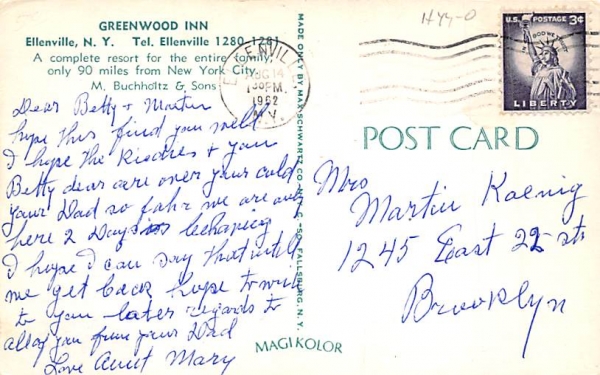 GREENWOOD INN
Ellenville, N. Y. Tel. Ellenville 1280-1281
A complete resort for the entire family,
only 90 miles from New York City.
M. Buchholtz & Sons
Dear Betty + Martin
hope this find you well
I hope the Kiddies + you
Betty dear are over your cold
your Dad so fahr we are only
here 2 Days behaving
I hope I can say that will
me get back hope to write
to you later regards to
all of you from your Dad
Love Aunt Mary
MADE ONLY BY MAX SCHWARTZ CO. SO. FALLSBURG, N. Y.
MAGIKOLOR
ELLENVILLE
AUG 14
PM
1962
N.Y.
H44-0
U.S. POSTAGE 3¢
IN GOD WE TRUST
LIBERTY
POST CARD
Mrs
Martin Koenig
1245 East 22 st
Brooklyn